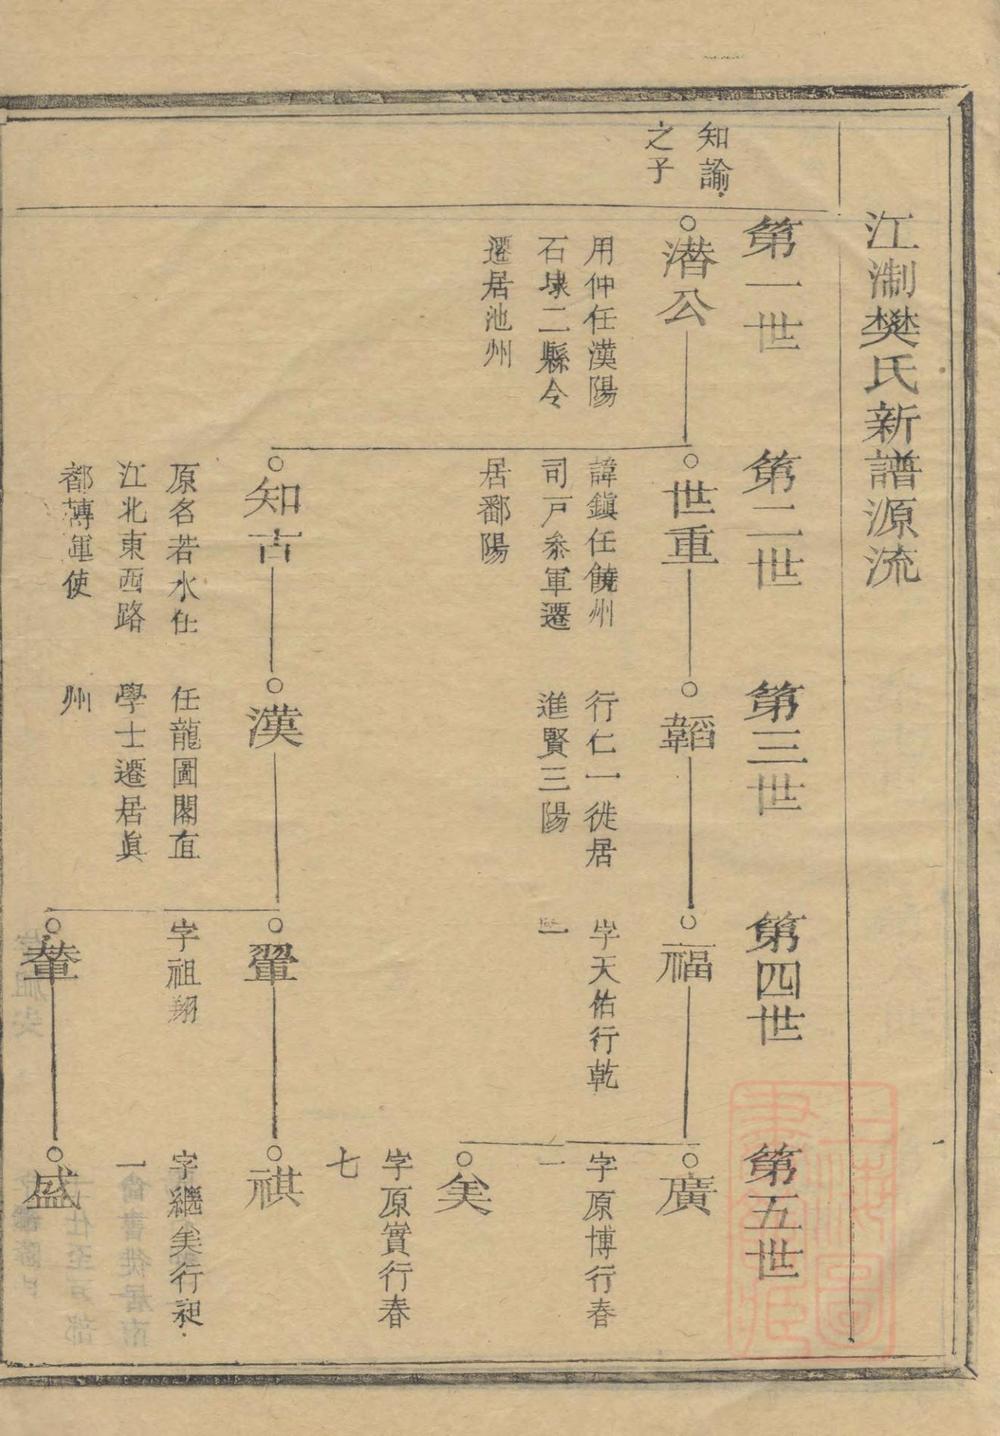 江淛樊氏新譜源流
第一世
第二世
第三世
第四世
第五世
知諭
之子
潛公
用仲任漢陽
石埭二縣令
遷居池州
世重
諱鎮任饒州
司戸叅軍遷
居鄱陽
韜
行仁一徙居
進賢三陽
福
字天佑行乾
一
廣
字原博行春
一
矣
字原實行春
七
知古
原名若水仕
江北東西路
都轉運使
漢
任龍圖閣直
學士遷居眞
州
翬
字祖翔
祺
字繼矣行昶
一
輦
盛